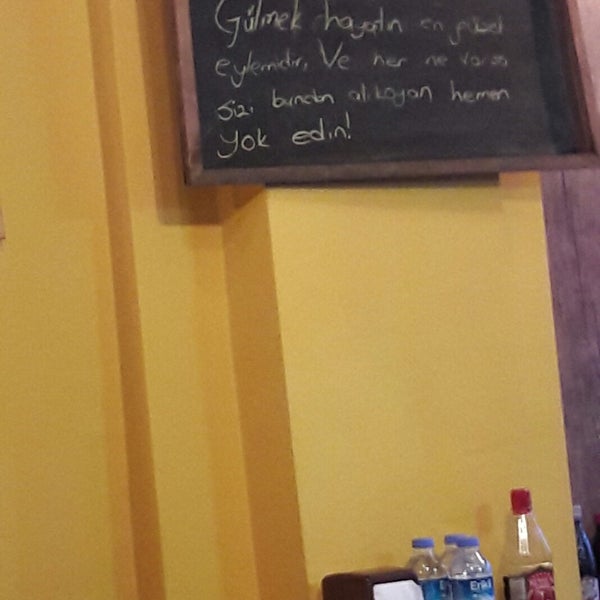 Gülmek hayatın en güzel
eylemidir, Ve her ne varsa
sizi bundan alıkoyan hemen
yok edin!
Erikli